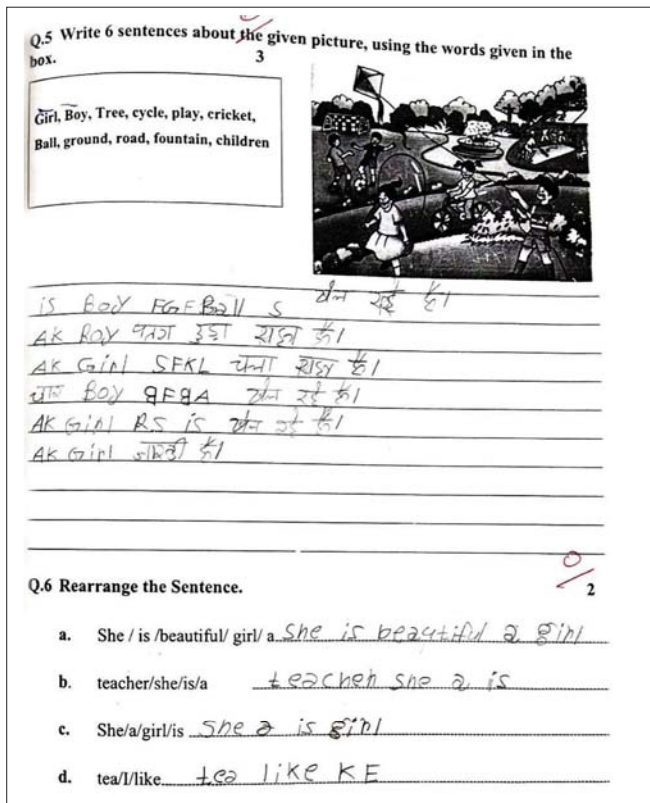 Q.5 Write 6 sentences about the given picture, using the words given in the
box. 3
Girl, Boy, Tree, cycle, play, cricket,
Ball, ground, road, fountain, children
is Boy FGFBall S खेल रहे है।
AK Boy पतंग उड़ा राहा है।
AK Girl SFKL चला राहा है।
चार Boy खेल रहे है।
AK Girl RS is खेल रहे है।
AK Girl है।
Q.6 Rearrange the Sentence. 0
2
a. She / is /beautiful/ girl/ a. She is beautiful a girl
b. teacher/she/is/a teacher she a is
c. She/a/girl/is She a is girl
d. tea/I/like tea like KE